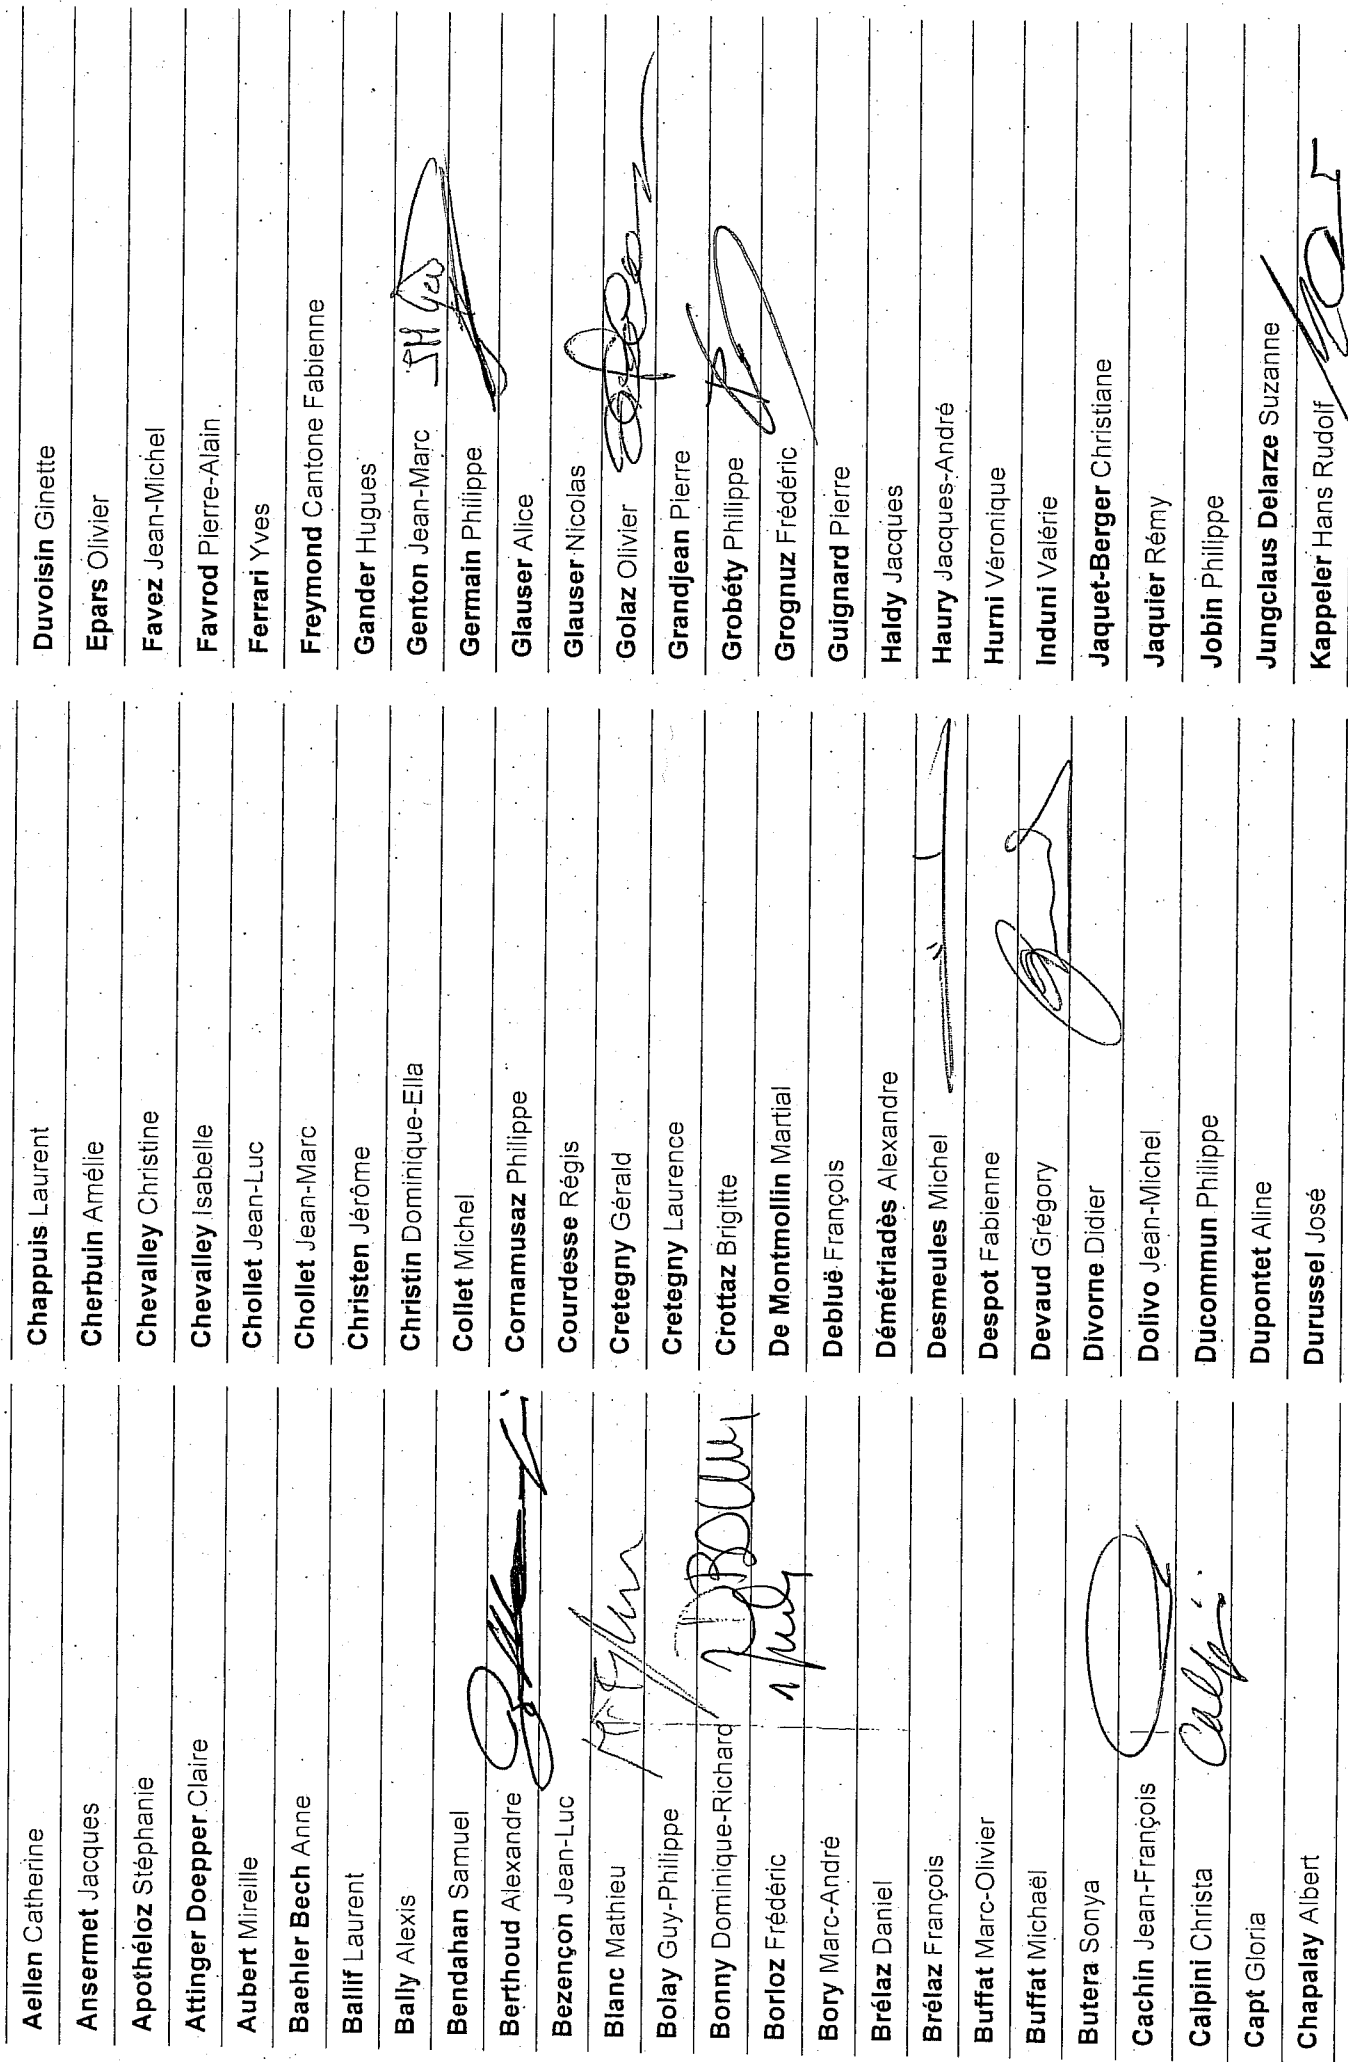 Aellen Catherine
Ansermet Jacques
Apothéloz Stéphanie
Attinger Doepper Claire
Aubert Mireille
Baehler Bech Anne
Ballif Laurent
Bally Alexis
Bendahan Samuel
Berthoud Alexandre
Bezençon Jean-Luc
Blanc Mathieu
Bolay Guy-Philippe
Bonny Dominique-Richard
Borloz Frédéric
Bory Marc-André
Brélaz Daniel
Brélaz François
Buffat Marc-Olivier
Buffat Michaël
Butera Sonya
Cachin Jean-François
Calpini Christa
Capt Gloria
Chapalay Albert
Chappuis Laurent
Cherbuin Amélie
Chevalley Christine
Chevalley Isabelle
Chollet Jean-Luc
Chollet Jean-Marc
Christen Jérôme
Christin Dominique-Ella
Collet Michel
Cornamusaz Philippe
Courdesse Régis
Cretegny Gérald
Cretegny Laurence
Crottaz Brigitte
De Montmollin Martial
Debluë François
Démétriadès Alexandre
Desmeules Michel
Despot Fabienne
Devaud Grégory
Divorne Didier
Dolivo Jean-Michel
Ducommun Philippe
Dupontet Aline
Durussel José
Duvoisin Ginette
Epars Olivier
Favez Jean-Michel
Favrod Pierre-Alain
Ferrari Yves
Freymond Cantone Fabienne
Gander Hugues
Genton Jean-Marc
Germain Philippe
Glauser Alice
Glauser Nicolas
Golaz Olivier
Grandjean Pierre
Grobéty Philippe
Grognuz Frédéric
Guignard Pierre
Haldy Jacques
Haury Jacques-André
Hurni Véronique
Induni Valérie
Jaquet-Berger Christiane
Jaquier Rémy
Jobin Philippe
Jungclaus Delarze Suzanne
Kappeler Hans Rudolf